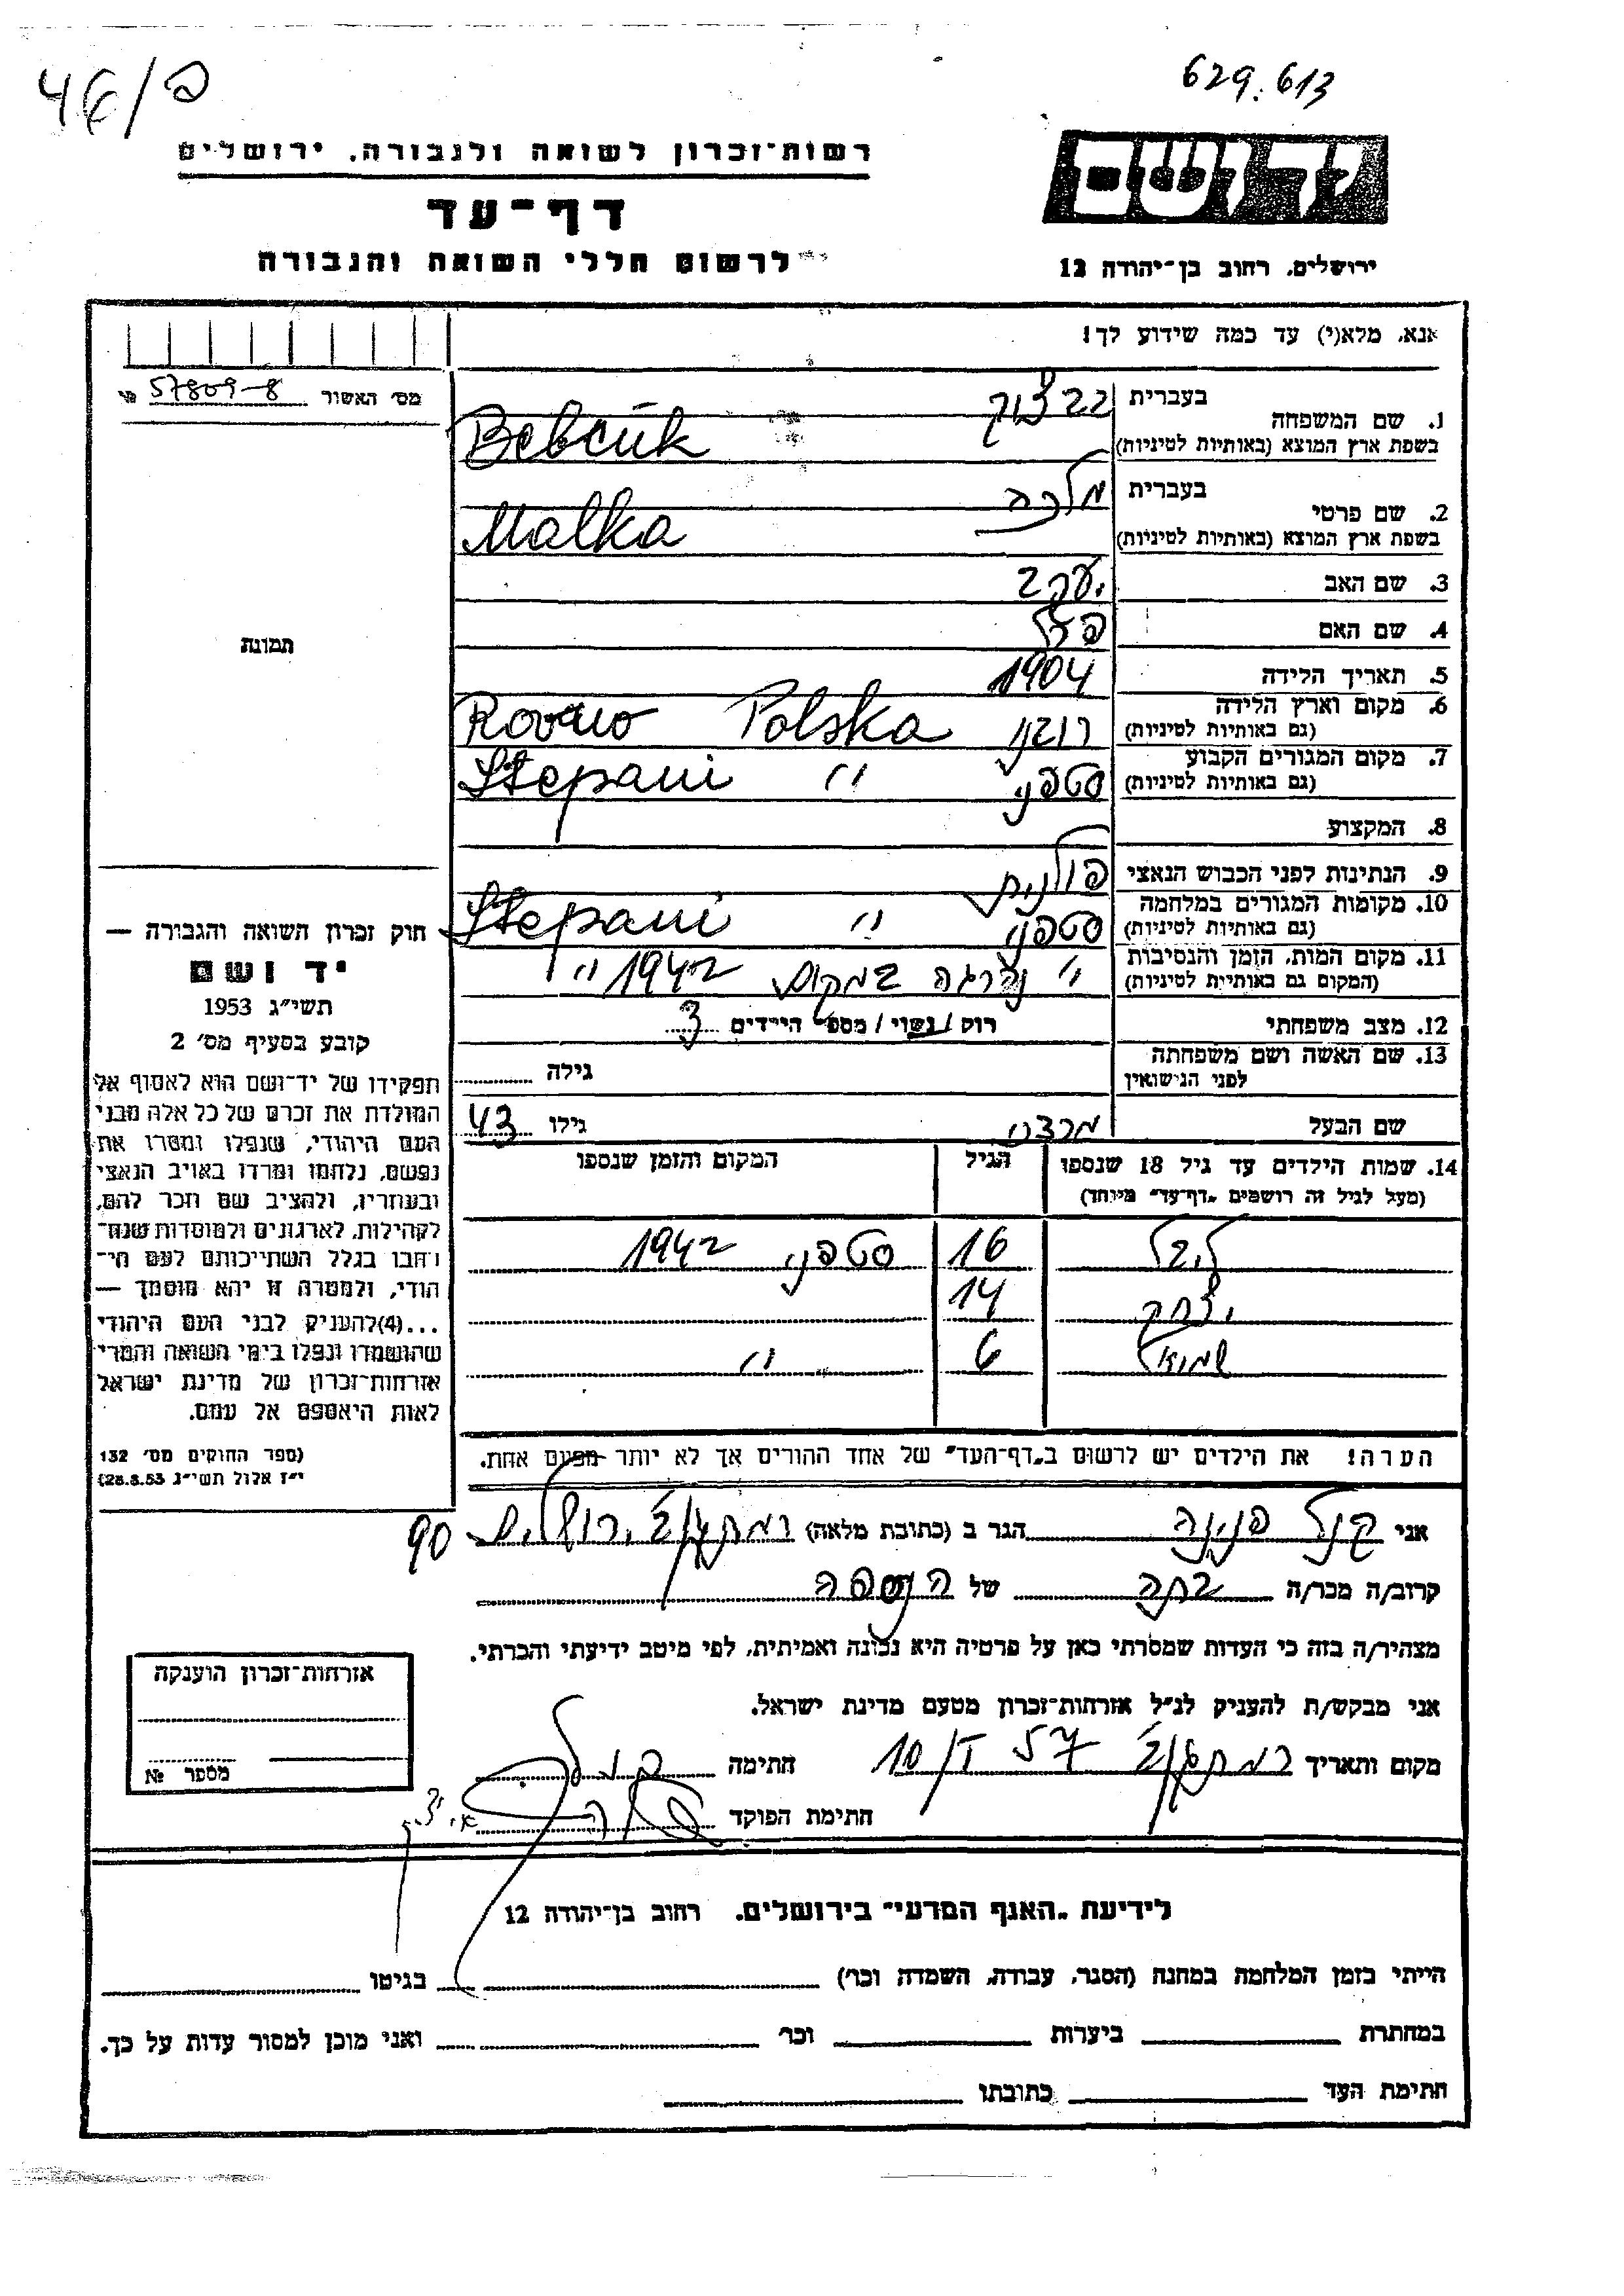 46/פ
629.613
רשות־זכרון לשואה ולגבורה, ירושלים
דף־עד
לרשום חללי השואה והגבורה
יד ושם
ירושלים, רחוב בן־יהודה 12
אנא, מלא(י) עד כמה שידוע לך!
מס׳ האשור 57809-8
1. שם המשפחה בעברית בבצוק
בשפת ארץ המוצא (באותיות לטיניות) Bebcuk
2. שם פרטי בעברית מלכה
בשפת ארץ המוצא (באותיות לטיניות) Malka
3. שם האב יעקב
4. שם האם פרל
5. תאריך הלידה 1904
6. מקום וארץ הלידה רובני Polska Rovno
(גם באותיות לטיניות)
7. מקום המגורים הקבוע סטפני " Stepani
(גם באותיות לטיניות)
8. המקצוע
9. הנתינות לפני הכבוש הנאצי פולנית
10. מקומות המגורים במלחמה סטפני " Stepani
(גם באותיות לטיניות)
11. מקום המות, הזמן והנסיבות " נהרגה במקום 1942 "
(המקום גם באותיות לטיניות)
12. מצב משפחתי רוק/נשוי/מספר הילדים 3
13. שם האשה ושם משפחתה לפני הנישואין גילה
שם הבעל מרדכי גילו 43
14. שמות הילדים עד גיל 18 שנספו הגיל המקום והזמן שנספו
(מעל לגיל זה רושמים "דף־עד" מיוחד)
ליבל 16 סטפני 1942
יצחק 14
שמואל 6 "
הערה! את הילדים יש לרשום ב"דף־העד" של אחד ההורים אך לא יותר מפעם אחת.
תמונת
חוק זכרון השואה והגבורה —
יד ושם
תשי״ג 1953
קובע בסעיף מס׳ 2
תפקידו של יד־ושם הוא לאסוף אל
המולדת את זכרם של כל אלה מבני
העם היהודי, שנפלו ומסרו את
נפשם, נלחמו ומרדו באויב הנאצי
ובעוזריו, ולהציב שם וזכר להם,
לקהילות, לארגונים ולמוסדות שנח־
רבו בגלל השתייכותם לעם הי־
הודי, ולמטרה זו יהא מוסמך —
...(4) להעניק לבני העם היהודי
שהושמדו ונפלו בימי השואה והמרי
אזרחות־זכרון של מדינת ישראל
לאות היאספם אל עמם.
(ספר החוקים מס׳ 132
י״ז אלול תשי״ג 28.8.53)
אני פנינה הגר ב (כתובת מלאה) ירושלים 90
קרוב/ה מכר/ה בתה של הנספה
מצהיר/ה בזה כי העדות שמסרתי כאן על פרטיה היא נכונה ואמיתית, לפי מיטב ידיעתי והכרתי.
אני מבקש/ת להעניק לנ״ל אזרחות־זכרון מטעם מדינת ישראל.
מקום ותאריך 10/ חתימה
חתימת הפוקד
אזרחות־זכרון הוענקה
מספר №
לידיעת "האגף המדעי" בירושלים, רחוב בן־יהודה 12
הייתי בזמן המלחמה במחנה (הסגר, עבודה, השמדה וכו׳) בגיטו
במחתרת ביערות וכו׳ ואני מוכן למסור עדות על כך.
חתימת העד כתובתו